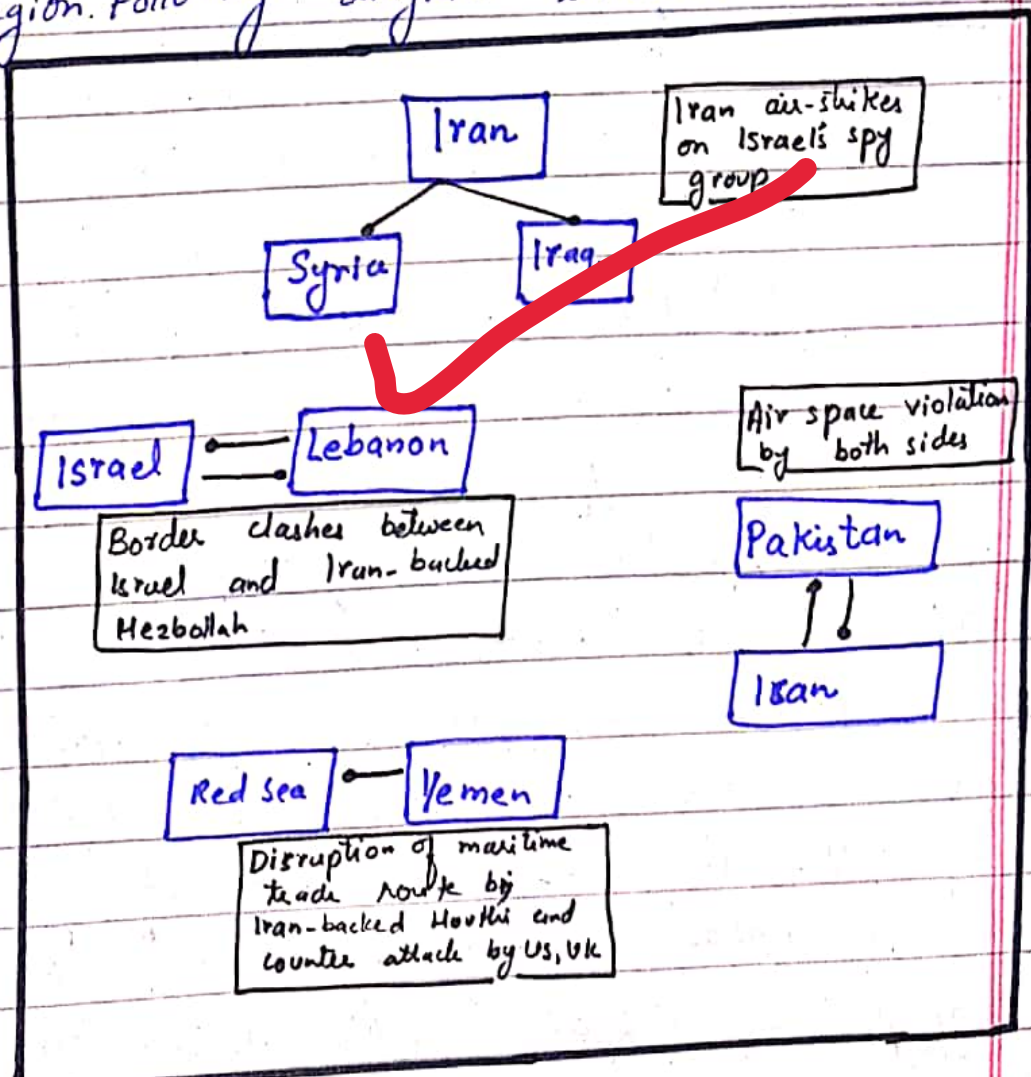 gion.
Iran
Iran air-strikes
on Israel's spy
group
Syria
Iraq
Israel
Lebanon
Border clashes between
Israel and Iran-backed
Hezbollah
Air space violation
by both sides
Pakistan
Iran
Red Sea
Yemen
Disruption of maritime
trade route by
Iran-backed Houthi and
counter attack by US, UK